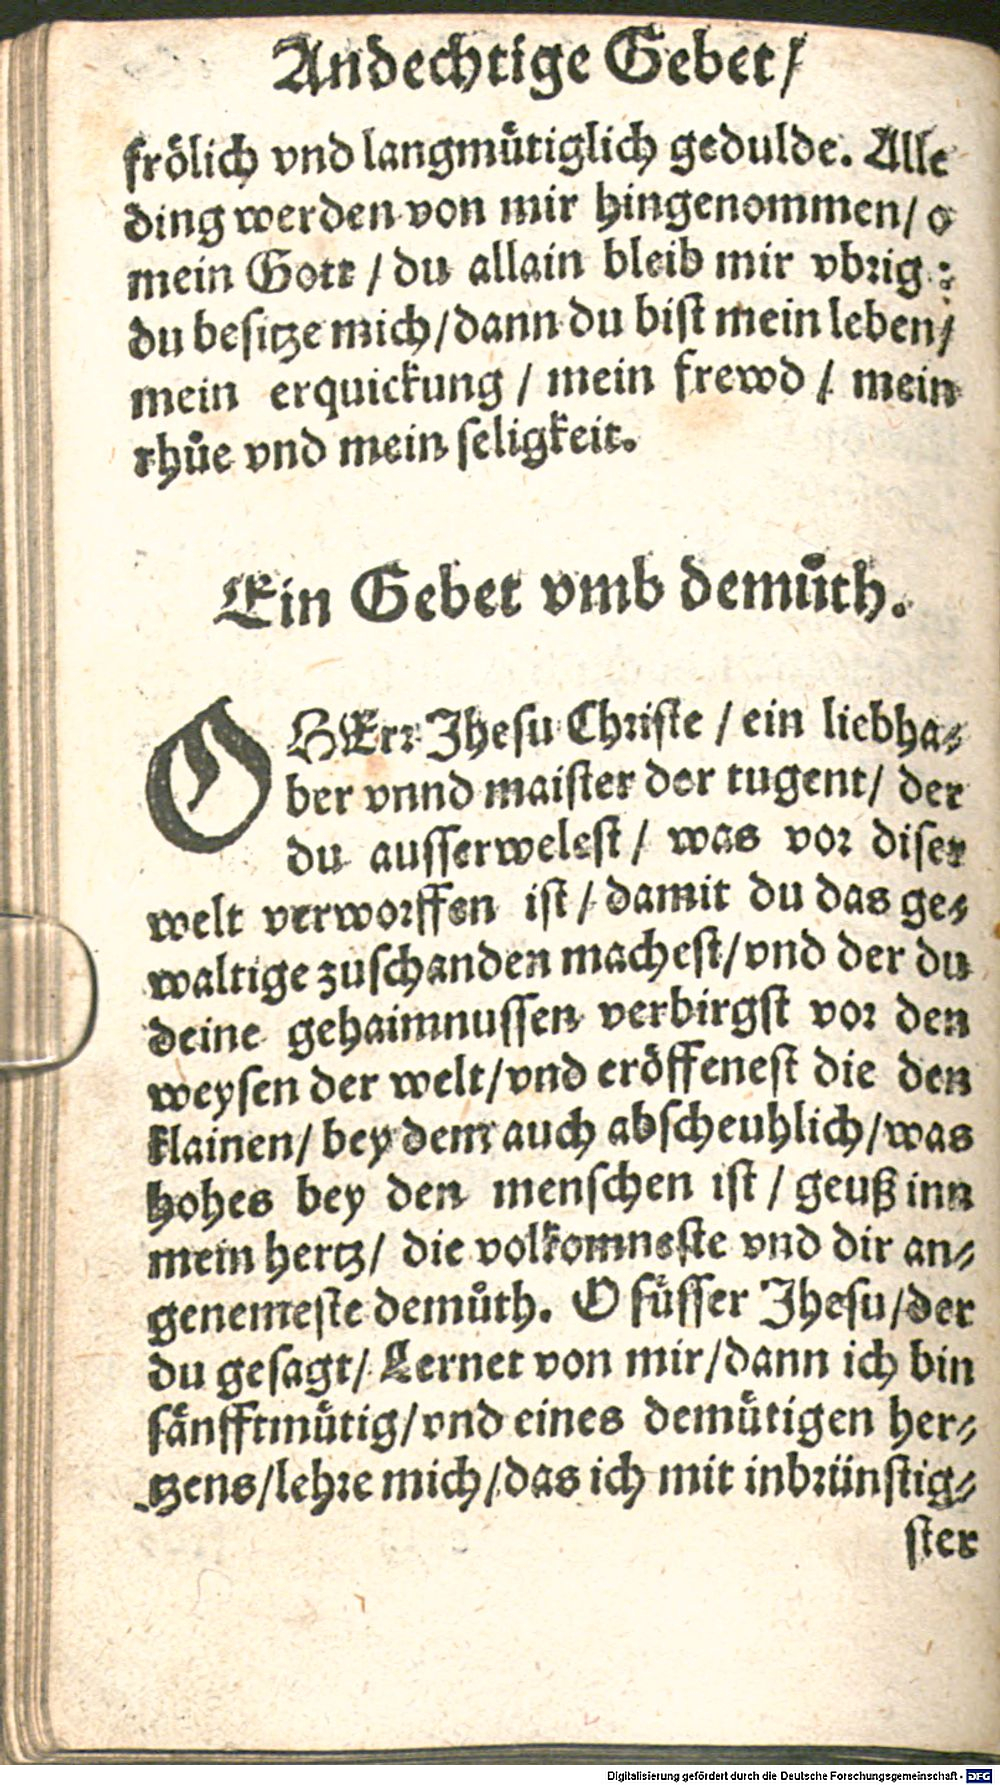 Andechtige Gebet/
frölich vnd langmůtiglich gedulde. Alle
ding werden von mir hingenommen/ o
mein Gott / du allain bleib mir vbrig :
du besitze mich/dann du bist mein leben/
mein erquickung / mein frewd / mein
rhůe vnd mein seligkeit.
Ein Gebet vmb demůth.
O HErr Jhesu Christe / ein liebha-
ber vnnd maister der tugent/ der
du ausserwelest/ was vor diser
welt verworffen ist/ damit du das ge-
waltige zuschanden machest/vnd der du
deine gehaimnussen verbirgst vor den
weysen der welt/vnd eröffenest die den
klainen/ bey dem auch abscheuhlich/was
hohes bey den menschen ist/ geuß inn
mein hertz/ die volkomneste vnd dir an-
genemeste demůth. O süsser Jhesu/der
du gesagt/ Lernet von mir/dann ich bin
sänfftmůtig/vnd eines demůtigen her-
tzens/lehre mich/das ich mit inbrünstig-
ster
Digitalisierung gefördert durch die Deutsche Forschungsgemeinschaft - DFG